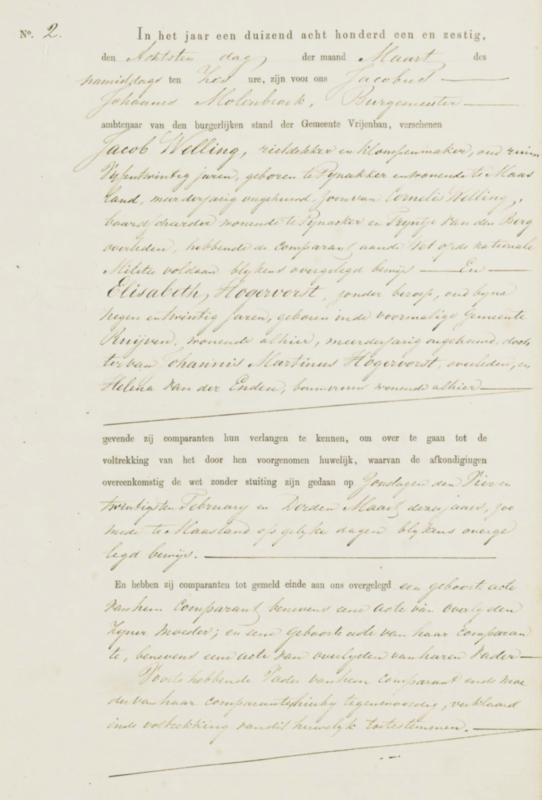 N°. 2. In het jaar een duizend acht honderd een en zestig,
den Achtsten dag, der maand Maart des
namiddags ten Zes ure, zijn voor ons Jacobus
Johannes Molenbroek, Burgemeester
ambtenaar van den burgerlijken stand der Gemeente Vrijenban, verschenen
Jacob Welling, rietdekker en klompenmaker, oud ruim
Vijfentwintig jaren, geboren te Pijnakker en wonende te Maas
land, meerderjarig ongehuwd. Zoon van Cornelis Welling,
wonende te Pijnacker en Trijntje van den Berg
overleden, hebbende de comparant aande Wet op de nationale
Militie voldaan blijkens overgelegd bewijs — En —
Elisabeth Hogervorst, zonder beroep, oud bijna
negen en twintig jaren, geboren inde voormalige gemeente
Ruijven, wonende alhier, meerderjarig ongehuwd, doch
ter van Johannis Martinus Hogervorst, overleden, en
Helena van der Enden, bouwvrouw wonende alhier
gevende zij comparanten hun verlangen te kennen, om over te gaan tot de
voltrekking van het door hen voorgenomen huwelijk, waarvan de afkondigingen
overeenkomstig de wet zonder stuiting zijn gedaan op Zondagen den Vier en
twintigsten February en Derden Maart dezes jaars, zoo
mede te Maasland op gelijke dagen blijkens overge
legd bewijs.
En hebben zij comparanten tot gemeld einde aan ons overgelegd een geboorte acte
van hem Comparant, benevens eene acte van overlyden
zyner moeder; en eene Geboorte acte van haar comparan
te, benevens eene acte van overlyden van haren Vader
Voorts hebbende Vader van hem comparant ende moe
der van haar comparante hierby tegenwoordig, verklaard
inde voltrekking van dit huwelyk toetestemmen.